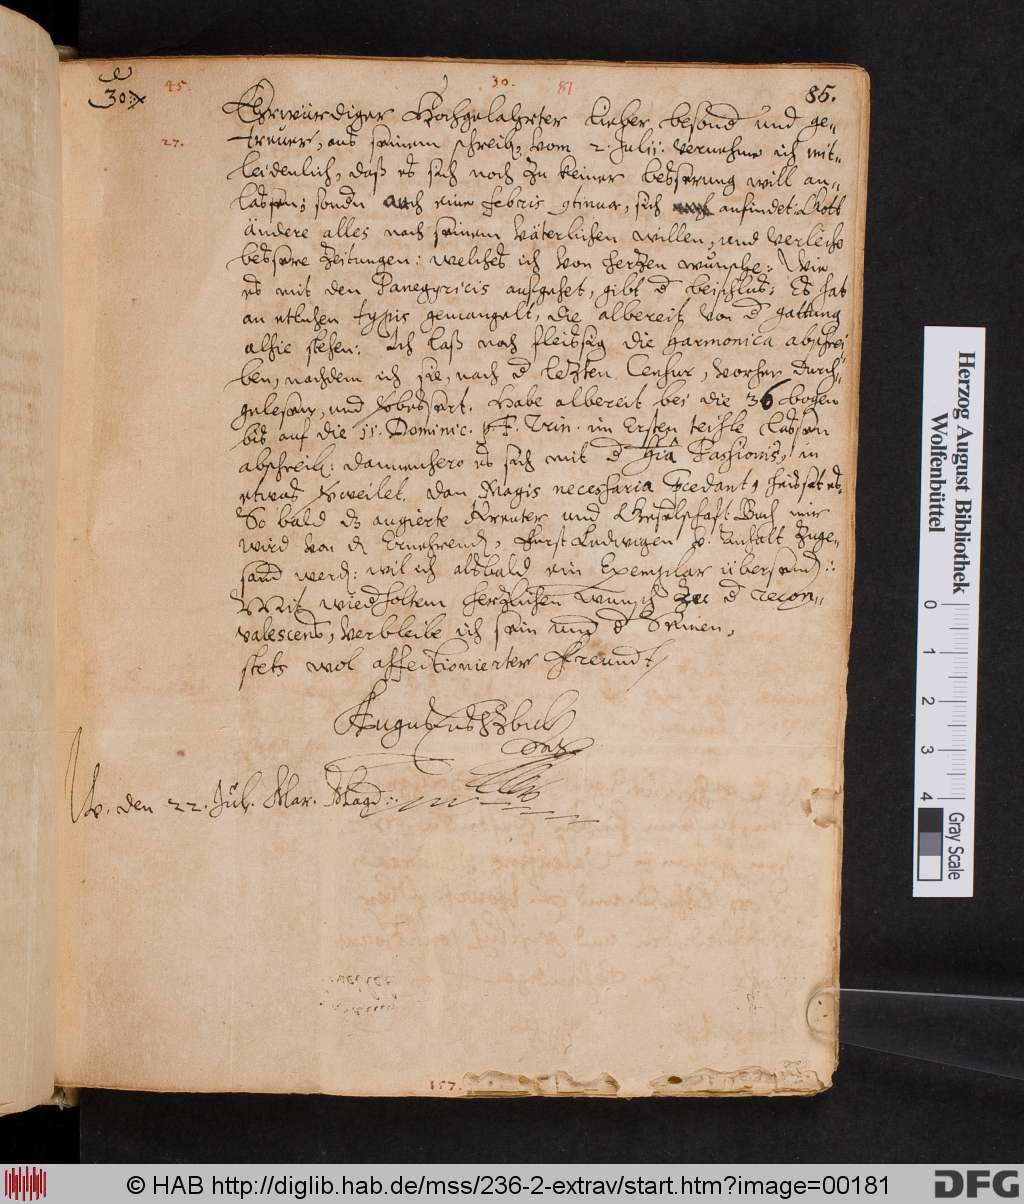 30.
45.
30.
81
85.
27.
Ehrwürdiger Hochgelahrter lieber besond und ge-
treuer, aus seinem schreib, vom 2. Julii. vernehme ich mit-
leidenlich, daß es sich noch zu keiner besserung will an-
lassen; sondn auch eine febris 9tinua, sich anfindet: Gott
ändere alles nach seinem väterlichen willen, und verleihe
bessere zeitungen: welches ich von hertzen wünsche: Wie
es mit den Panegyricis ausgehet, gibt d beischlus: Es hat
an etlichen typis gemangelt, die albereit von d gattung
alhie stehen: Ich laß noch fleissig die Harmonica abschrei-
ben, nachdem ich sie, nach d letzten Censur, vorher durch-
gelesen, und vbessert. Habe albereit bei die 36 bogen
bis auf die 11. Dominic. Trin. im Ersten teihle lassen
abschreib: dannenhero es sich mit d Passionis, in
etwas vweilet. dan Magis necessaria heisset es.
So bald dz angierte Kreuter und Geselschaft Buch mir
wird von d Ernehrend, Fürst Ludwigen z. Anhalt zuge-
sand werd: wil ich alsbald ein Exemplar übersend::
Mit wiedholtem hertzlichen wunsch zu d recon-
valescens, verbleibe ich sein und d Seinen,
stets wol affectionierter Freundt
Augustus HZBuL
W. den 22. Jul. Mar. Magd::
157.
Herzog August Bibliothek
Wolfenbüttel
0 1 2 3 4
Gray Scale
© HAB http://diglib.hab.de/mss/236-2-extrav/start.htm?image=00181
DFG